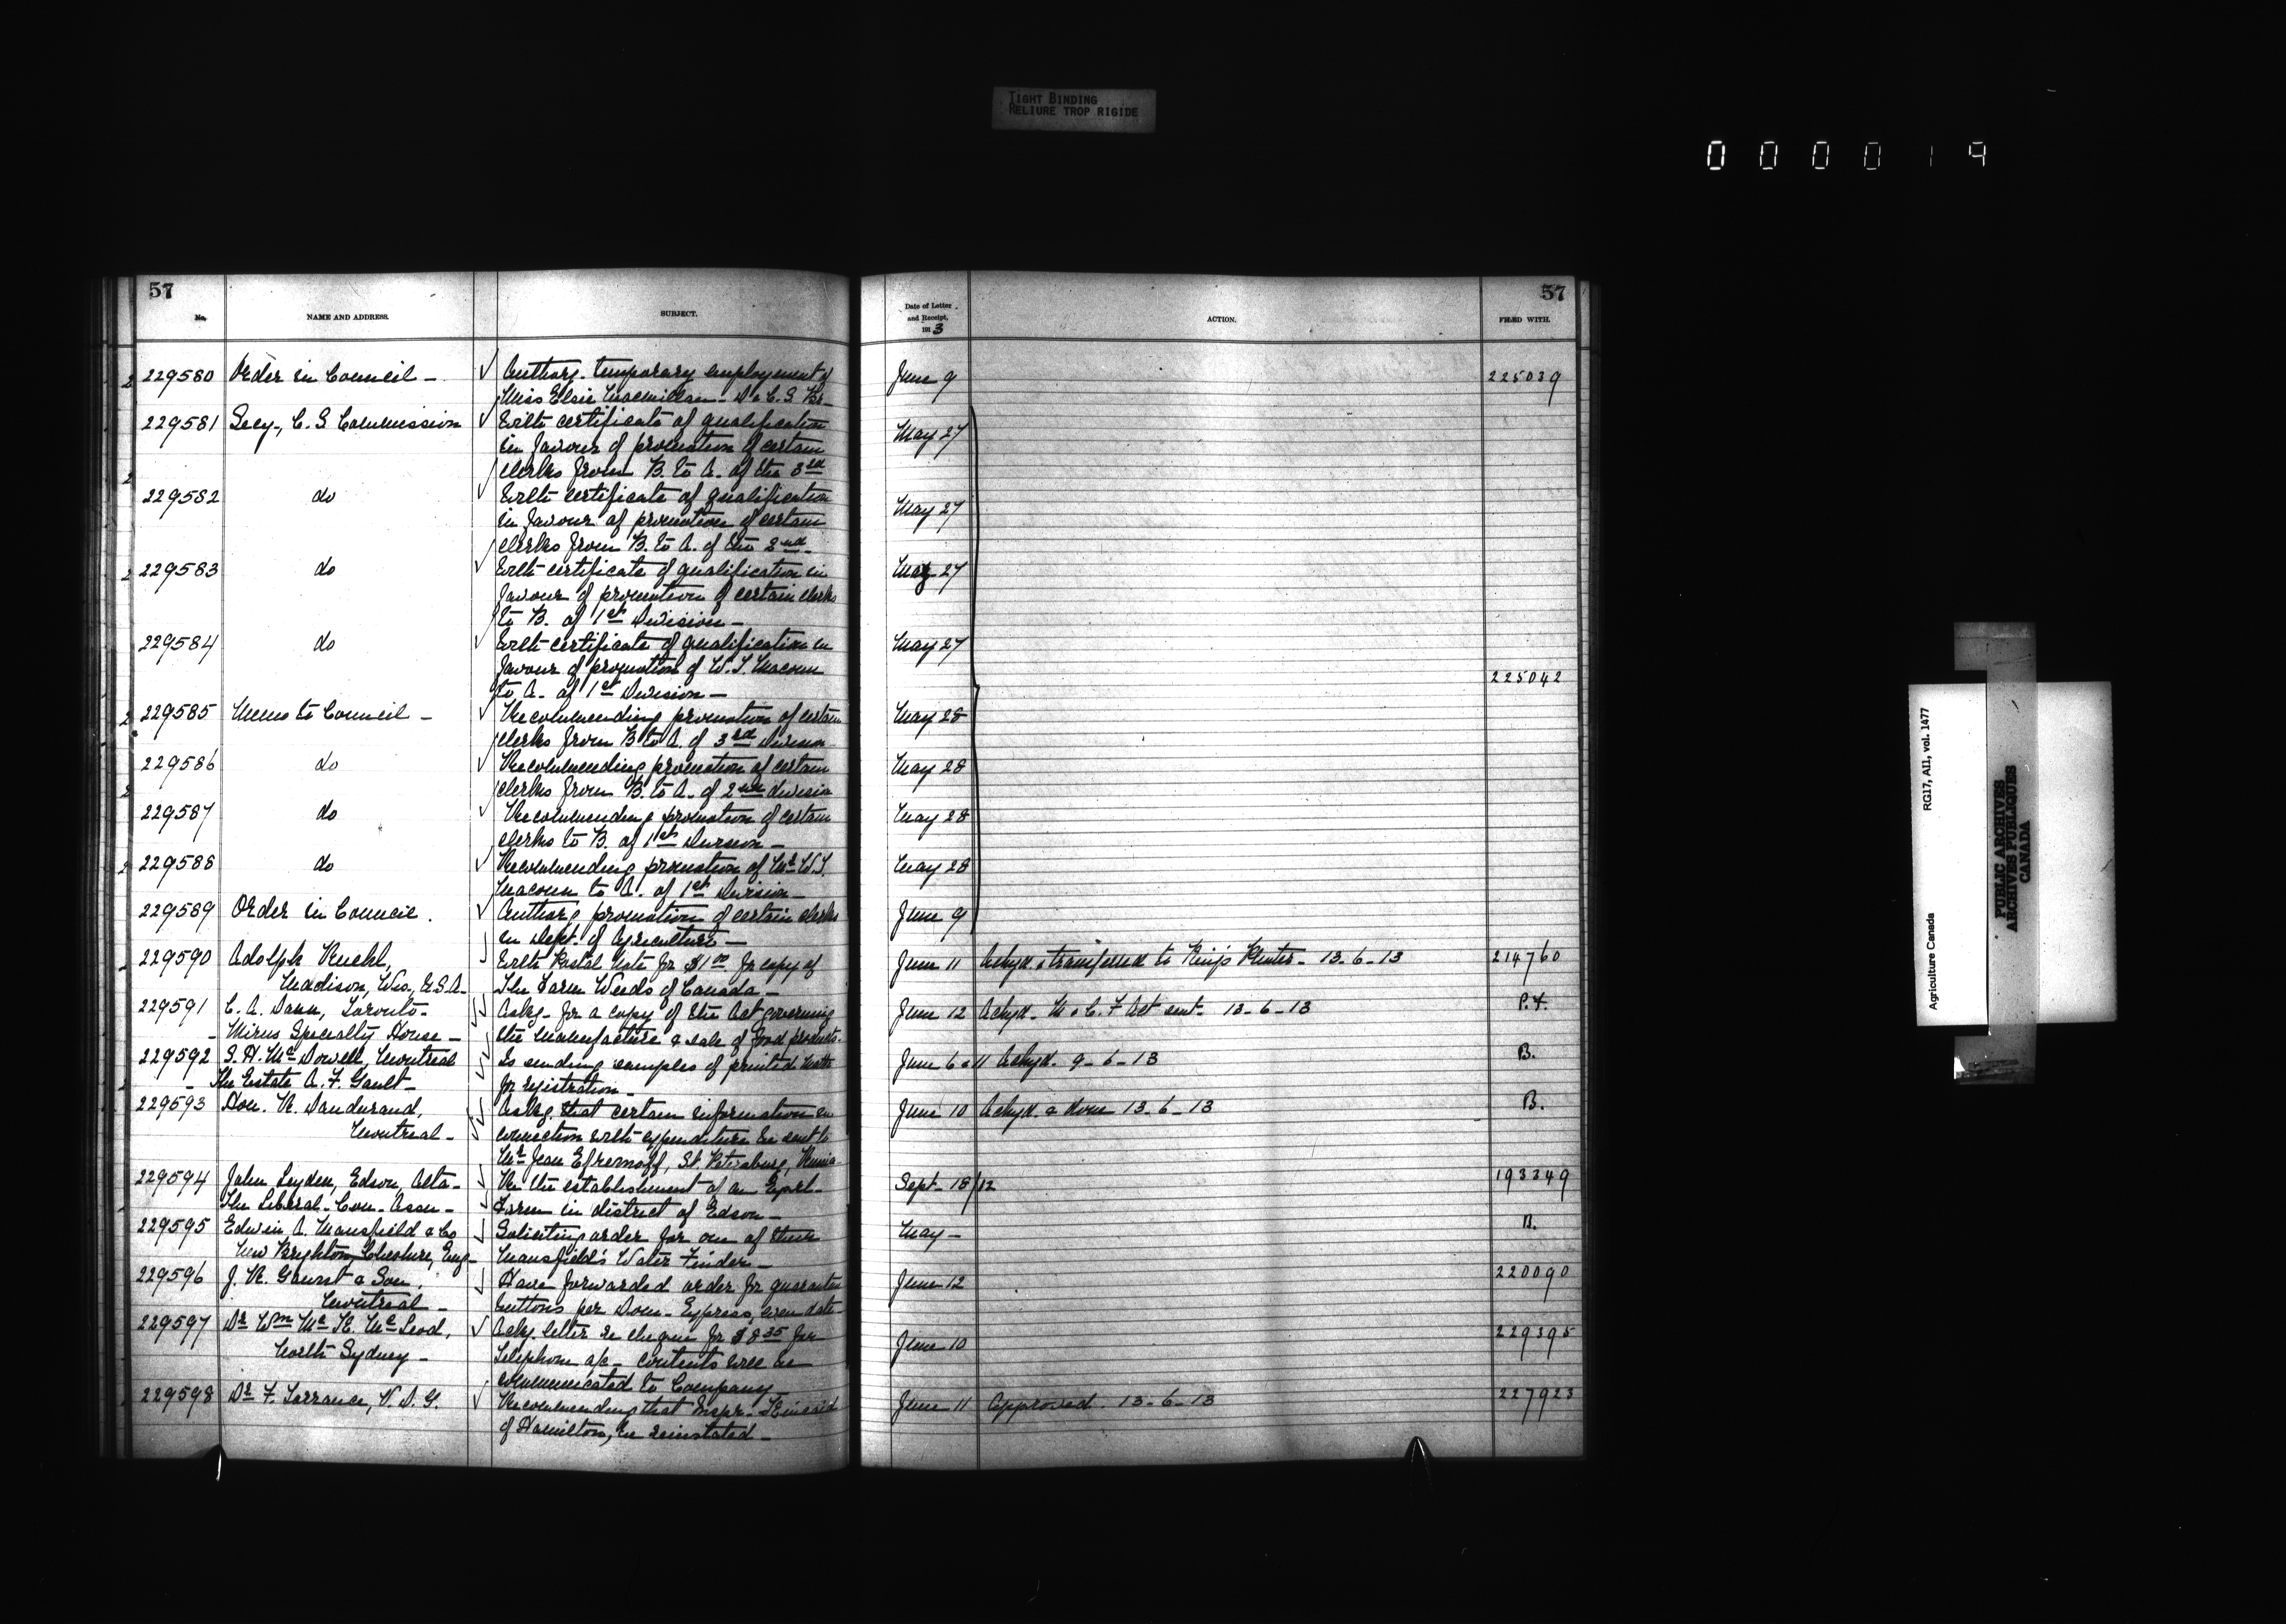 TIGHT BINDING
RELIURE TROP RIGIDE
000019
57
No.
NAME AND ADDRESS.
SUBJECT.
229580 Order in Council - Authorg. temporary employment of
Miss Elsie Macmillan - D & C. S. Br-
229581 Secy-, C. S Commission With certificate of qualification
in favour of promotion of certain
clerks from B. to A. of the 3rd
229582 do With certificate of qualification
in favour of promotion of certain
clerks from B. to A. of the 2nd-
229583 do With certificate of qualification in
favour of promotion of certain clerks
to B. of 1st Division -
229584 do With certificate of qualification in
favour of promotion of W. T. Macoun
to A. of 1st Division -
229585 Memo to Council - Recommending promotion of certain
clerks from B to A. of 3rd Division
229586 do Recommending promotion of certain
clerks from B. to A. of 2nd division
229587 do Recommending promotion of certain
clerks to B. of 1st Division -
229588 do Recommending promotion of Mr W. T.
Macoun to A. of 1st Division -
229589 Order in Council. Authorg promotion of certain clerks
in Dept. of Agriculture -
229590 Adolph Kuehl, With Postal Note for $1.00 for copy of
Madison, Wis., U.S.A- The Farm Weeds of Canada -
229591 C. A. Dann, Toronto- Askg- for a copy of the Act governing
- Mirus Specialty House - the manufacture & sale of food products-
229592 S. H. McDowell, Montreal Is sending samples of printed matter
- The Estate A. F. Gault- for registration -
229593 Hon. R. Dandurand, Askg. that certain information in
Montreal - connection with expenditure be sent to
Mr Jean Efremoff, St. Petersburg, Russia-
229594 John Leyden, Edson, Alta- Re the establishment of an Exptl-
The Liberal-Con-Assn- Farm in district of Edson -
229595 Edwin A. Mansfield & Co Soliciting order for one of their
New Brighton, Cheshire, Eng- Mansfield's Water Finder -
229596 J. R. Gaunt & Son, Have forwarded order for quarantine
Montreal - buttons per Dom- Express, even date
229597 Dr Wm Mc K. McLeod, Ackg letter re cheque for $8.35 for
North Sydney - telephone a/c - contents will be
communicated to Company
229598 Dr F. Torrance, V. D. G. Recommending that Inspr- Kincaid
of Hamilton, be reinstated -
57
Date of Letter
and Receipt,
1913
ACTION.
FILED WITH.
June 9 225039
May 27
May 27
May 27
May 27
225042
May 28
May 28
May 28
May 28
June 9
June 11 Ackgd. & transferred to King's Printer - 13-6-13 214760
June 12 Ackgd- M & C. F Act sent- 13-6-13 P.F.
June 6 & 11 Ackgd. 9-6-13 B.
June 10 Ackgd. & done 13-6-13 B.
Sept- 18/12 193349
May - B.
June 12 220090
June 10 229395
June 11 Approved. 13-6-13 227923
Agriculture Canada RG17, AII, vol. 1477
PUBLIC ARCHIVES
ARCHIVES PUBLIQUES
CANADA